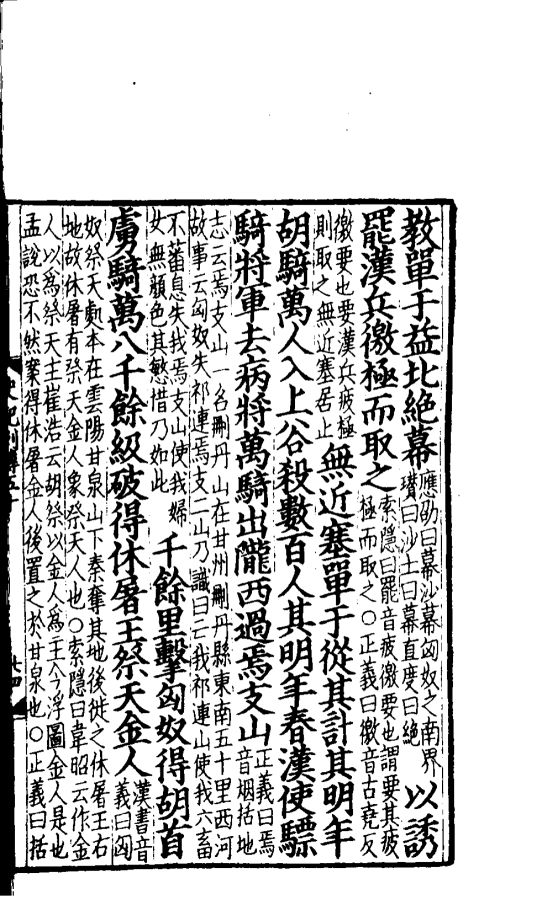 教單于益北絕幕應劭曰幕沙幕匈奴之南界
瓚曰沙土曰幕直度曰絕
以誘
罷漢兵徼極而取之索隱曰罷音疲徼要也謂要其疲
極而取之○正義曰徼音古堯反
徼要也要漢兵疲極
則取之無近塞居止
無近塞單于從其計其明年
胡騎萬人入上谷殺數百人其明年春漢使驃
騎將軍去病將萬騎出隴西過焉支山正義曰焉
音烟括地
志云焉支山一名刪丹山在甘州刪丹縣東南五十里西河
故事云匈奴失祁連焉支二山乃識曰云我祁連山使我六畜
不蕃息失我焉支山使我婦
女無顏色其慜惜乃如此
千餘里擊匈奴得胡首
虜騎萬八千餘級破得休屠王祭天金人漢書音
義曰匈
奴祭天處本在雲陽甘泉山下秦奪其地後徙之休屠王右
地故休屠有祭天金人象祭天人也○索隱曰韋昭云作金
人以爲祭天主崔浩云胡祭以金人爲主今浮圖金人是也
孟說恐不然案得休屠金人後置之於甘泉也○正義曰括